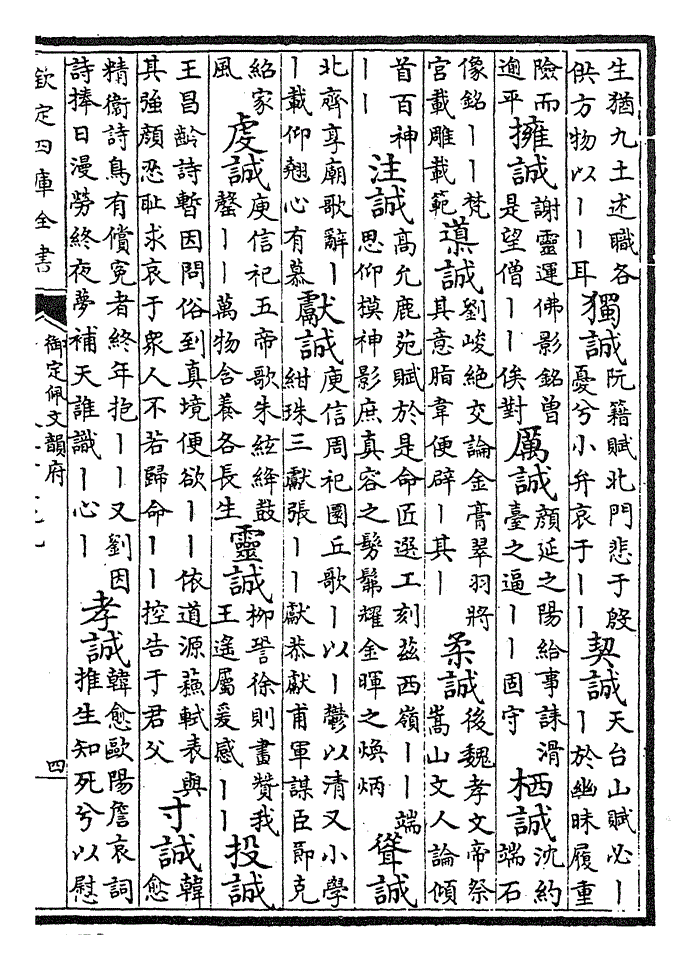 生猶九土述職各供方物以丨丨耳獨誠阮籍賦北門悲于殷憂兮小弁哀于丨丨契誠天台山賦必丨丨於幽昧履重
險而逈平擁誠謝靈運佛影銘曾是望僧丨丨俟對厲誠顔延之陽給事誄滑臺之逼丨丨固守栖誠沈約端石
像銘丨丨梵宫載雕載範導誠劉峻絶交論金膏翠羽將其意脂韋便辟丨其丨柔誠後魏孝文帝祭嵩山文人論傾
首百神丨丨注誠高允鹿苑賦於是命匠選工刻茲西嶺丨丨端思仰模神影庶真容之髣髴耀金暉之煥炳聳誠
北齊享廟歌辭丨丨載仰翹心有慕獻誠庾信周祀圜丘歌丨以丨丨鬱以清又小學紺珠三獻張丨丨獻恭獻甫軍謀臣節克
紹家風虔誠庾信祀五帝歌朱絃絳鼓罄丨丨萬物含養各長生靈誠柳䛒徐則畫贊我王遙屬爰感丨丨投誠
王昌齡詩暫因問俗到真境便欲丨丨依道源蘇軾表與其強顔忍恥求哀于衆人不若歸命丨丨控告于君父寸誠韓愈
精衞詩鳥有償寃者終年抱丨丨又劉因詩捧日漫勞終夜夢補天誰識丨心丨孝誠韓愈歐陽詹哀詞推生知死兮以慰
欽定四庫全書
御定佩文韻府
四